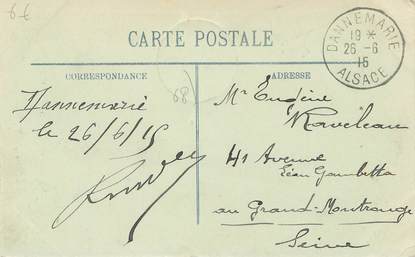 6-6
CARTE POSTALE
CORRESPONDANCE
ADRESSE
DANNEMARIE
19 *
26 -6
15
ALSACE
(68)
Dannemarie
le 26/6/15
Mr Eugène
Raveleau
41 Avenue
Léon Gambetta
au Grand-Montrouge
Seine